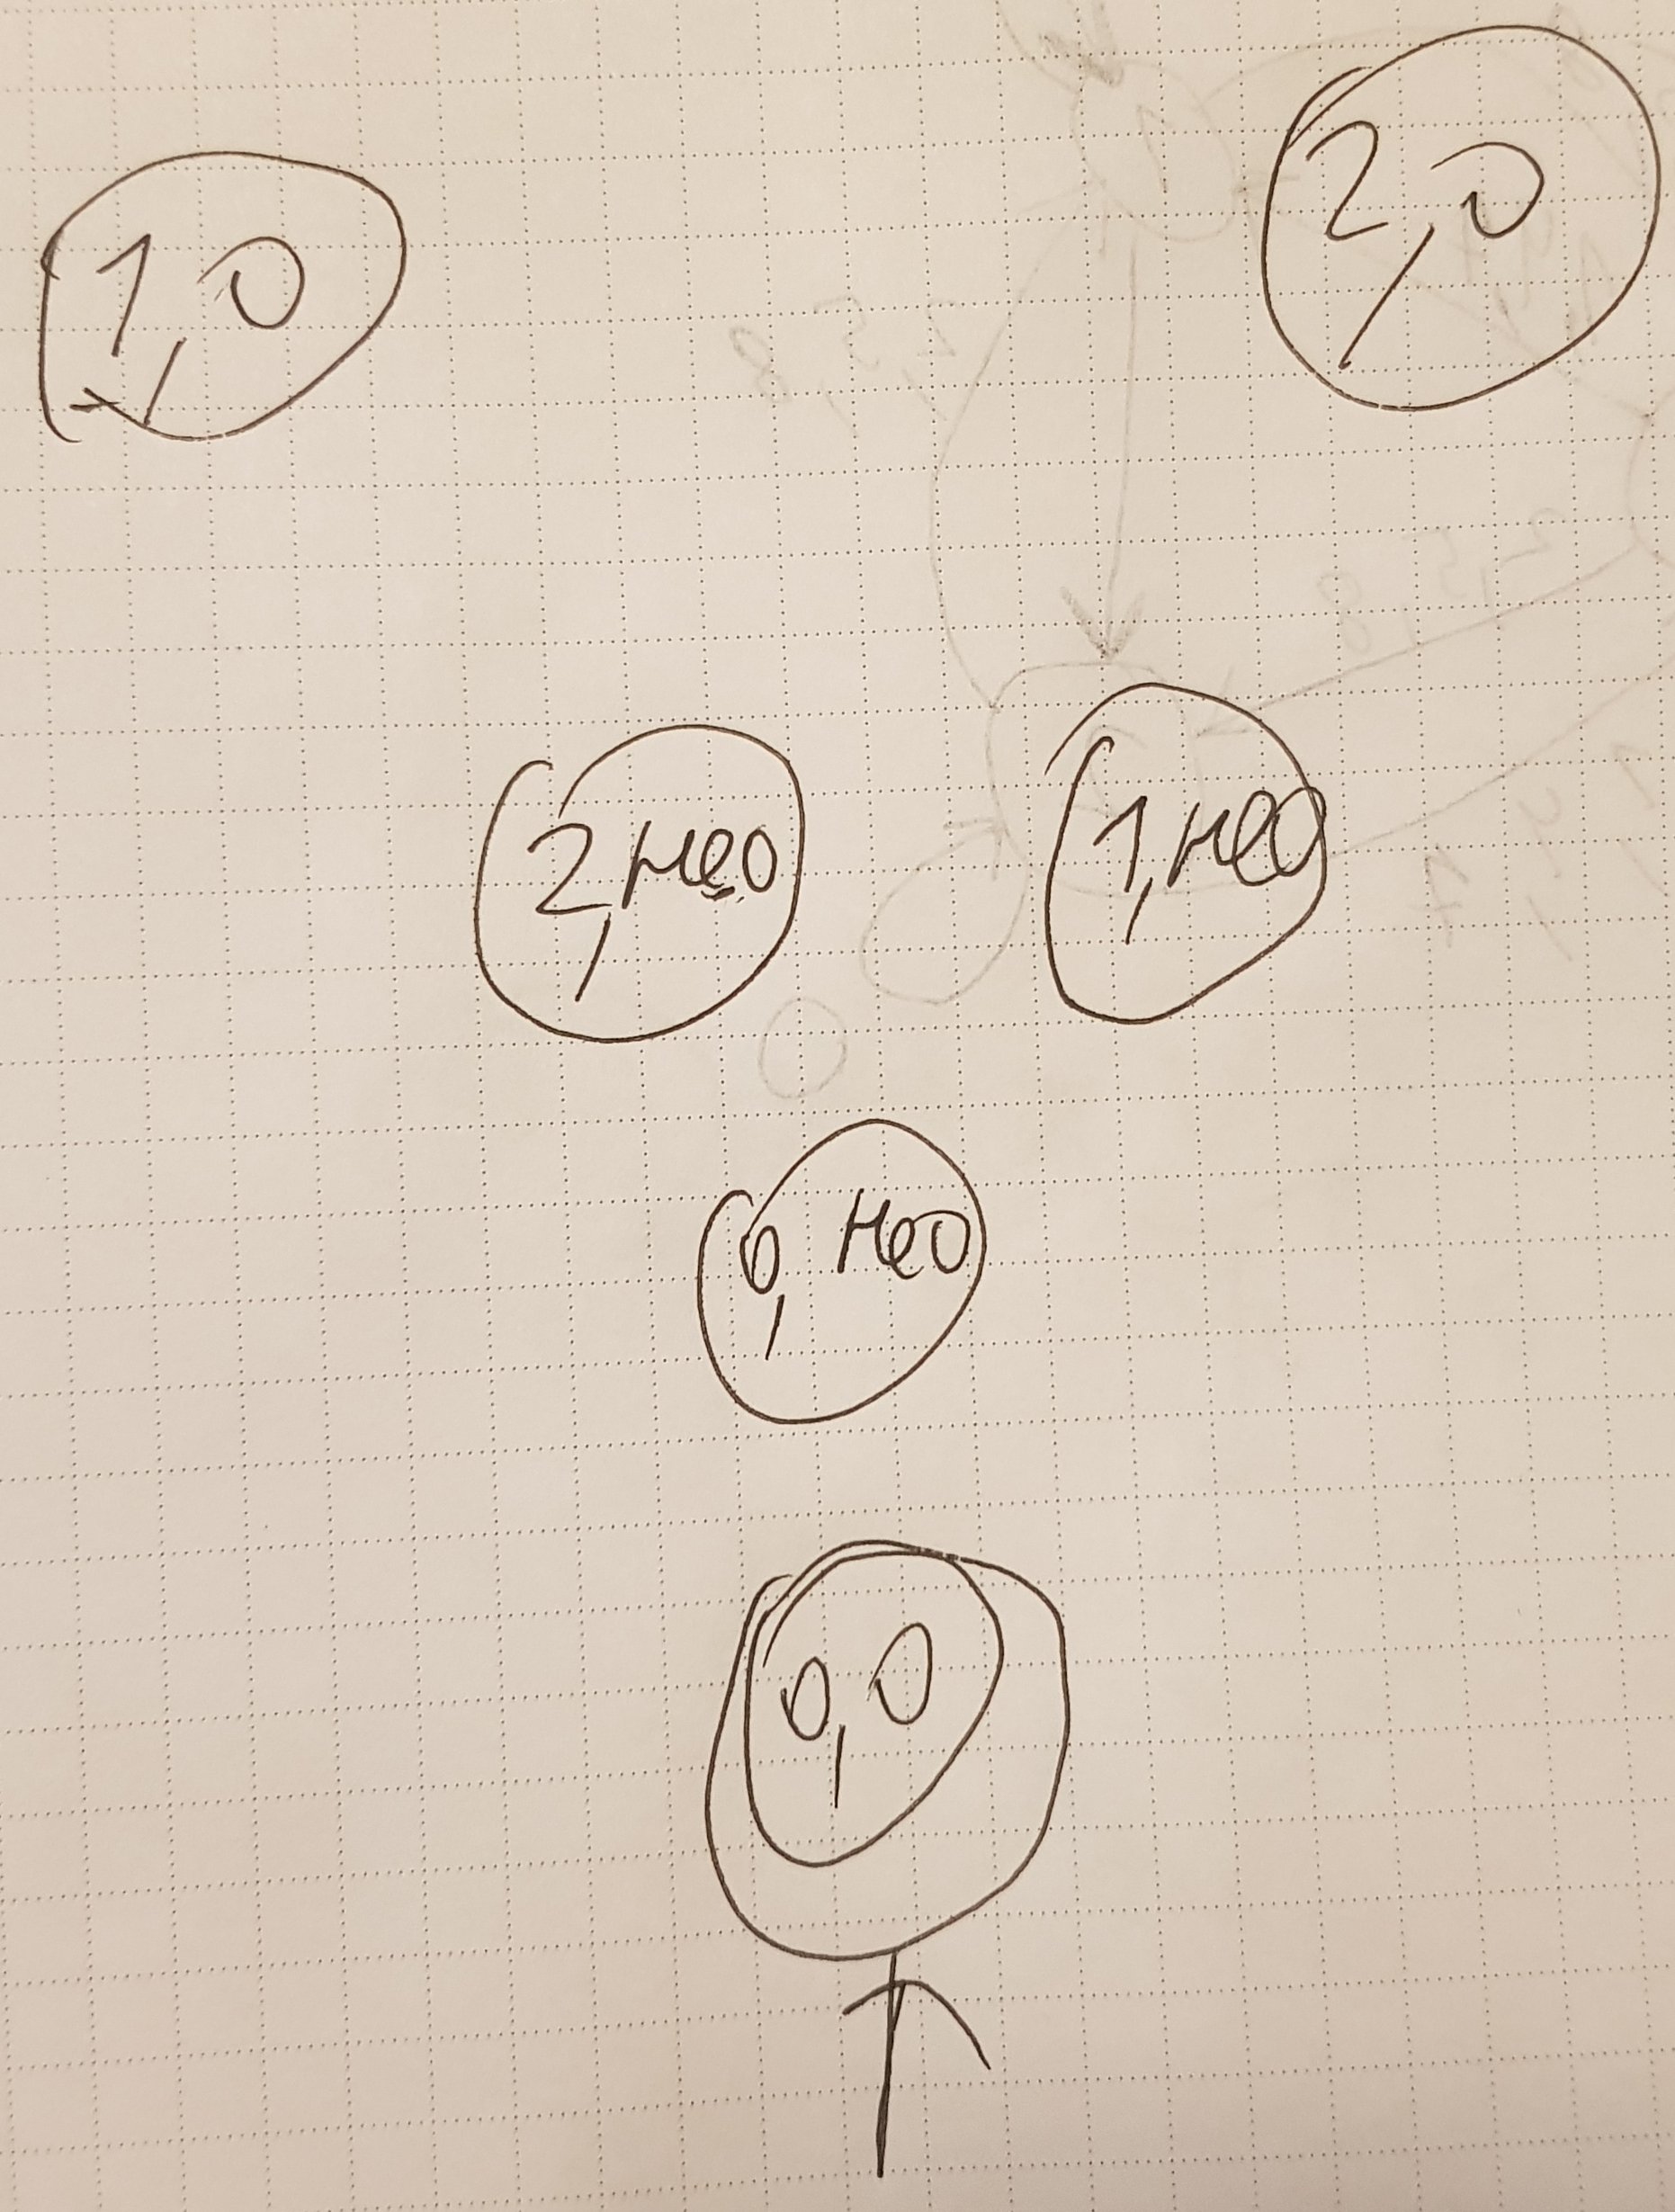 1,0
2,0
2, нео
1, нео
0, нео
0,0